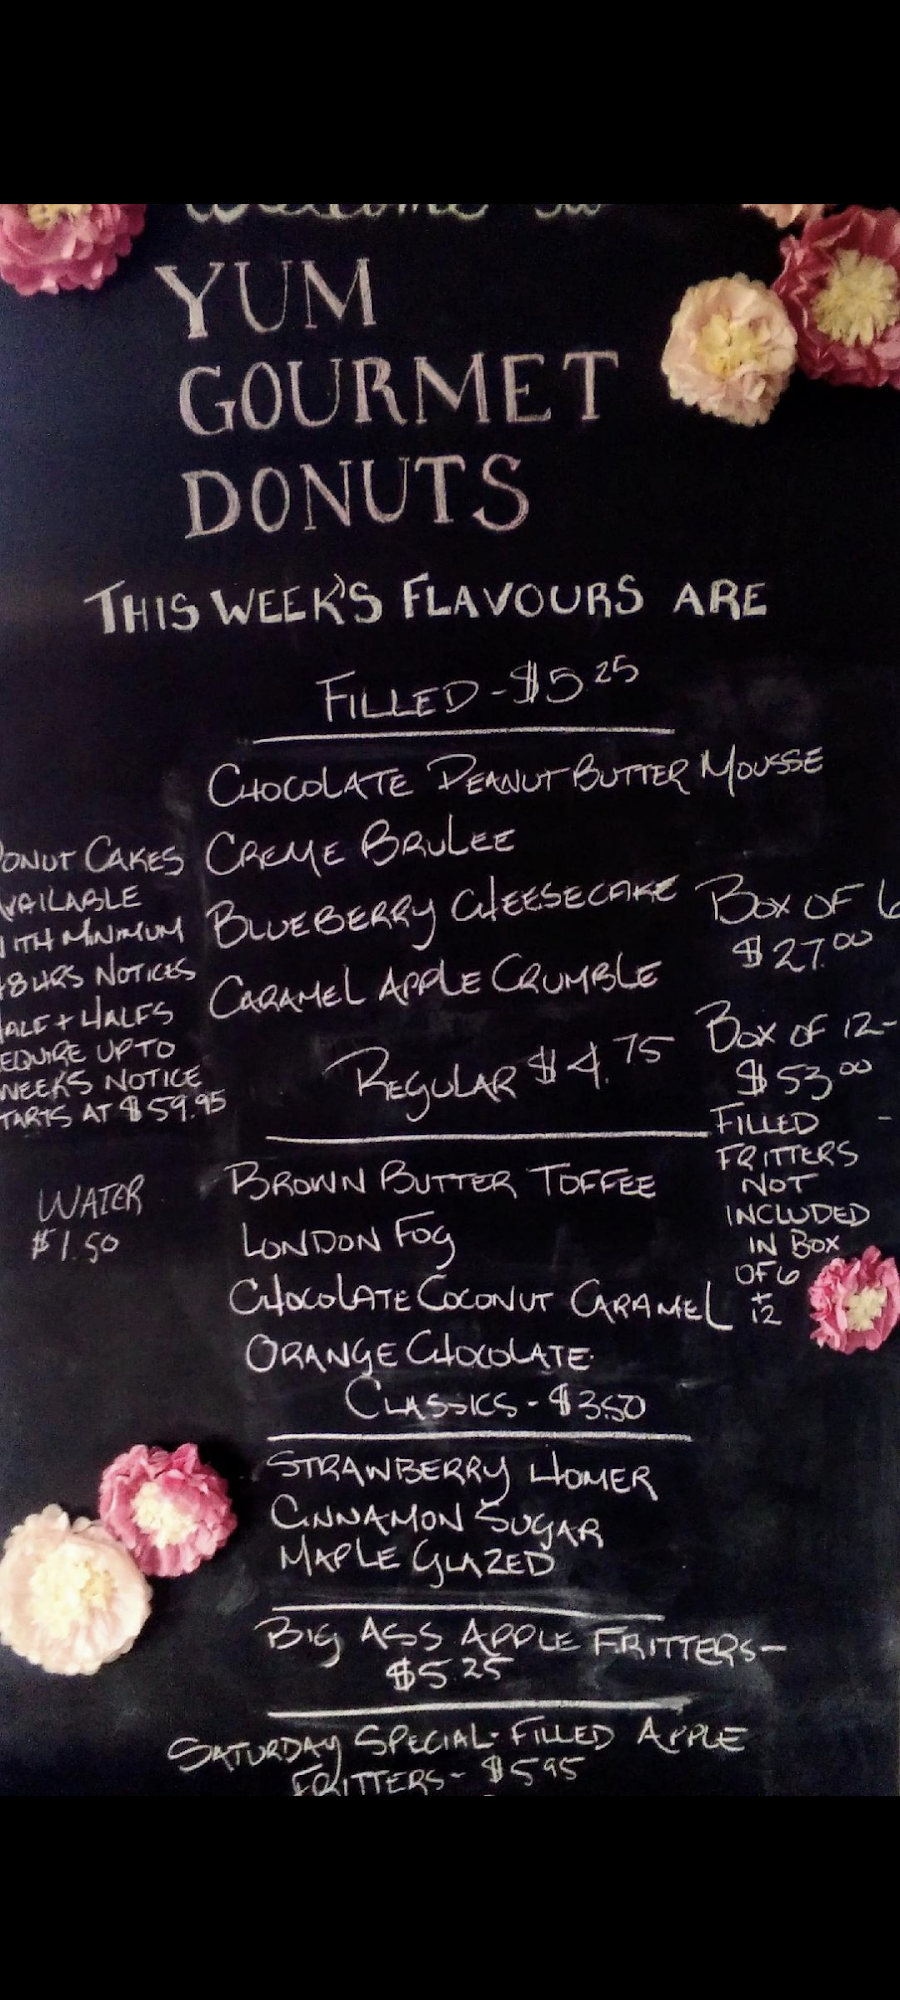 Welcome to
YUM
GOURMET
DONUTS
THIS WEEK'S FLAVOURS ARE
FILLED - $5.25
CHOCOLATE PEANUT BUTTER MOUSSE
CREME BRULEE
BLUEBERRY CHEESECAKE
CARAMEL APPLE CRUMBLE
REGULAR $4.75
BROWN BUTTER TOFFEE
LONDON FOG
CHOCOLATE COCONUT CARAMEL
ORANGE CHOCOLATE
CLASSICS - $3.50
STRAWBERRY HOMER
CINNAMON SUGAR
MAPLE GLAZED
BIG ASS APPLE FRITTERS -
$5.25
SATURDAY SPECIAL - FILLED APPLE
FRITTERS - $5.95
ONUT CAKES
VAILABLE
ITH MINIMUM
48HRS NOTICES
ALF + HALFS
EQUIRE UP TO
WEEKS NOTICE
TARTS AT $59.95
WATER
$1.50
BOX OF 6
$27.00
BOX OF 12 -
$53.00
FILLED -
FRITTERS
NOT
INCLUDED
IN BOX
OF 6
+
12